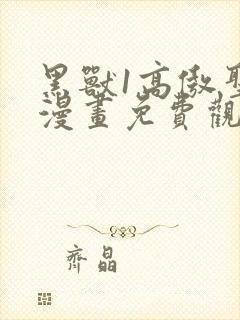 黑獸1高傲聖
漫畫免費觀
齊晶